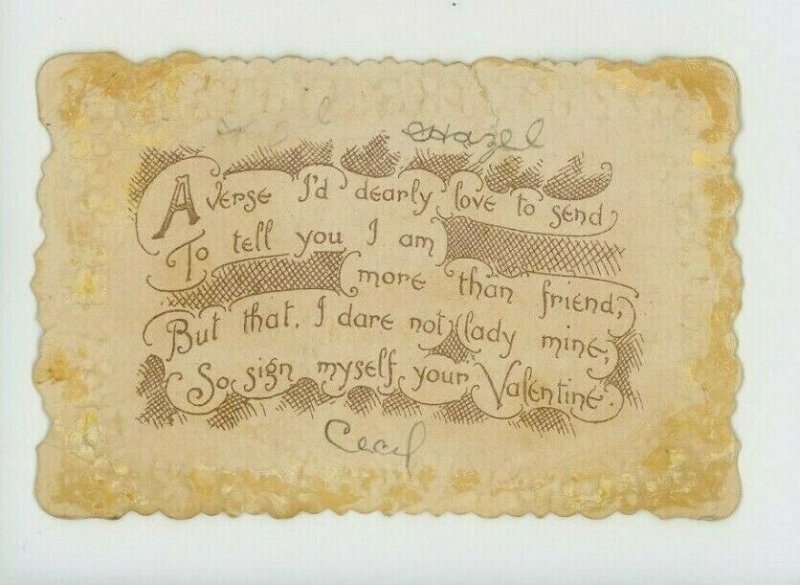 Hazel
A verse I'd dearly love to send
To tell you I am
more than friend,
But that, I dare not, (lady mine,
So sign myself your Valentine.
Cecil